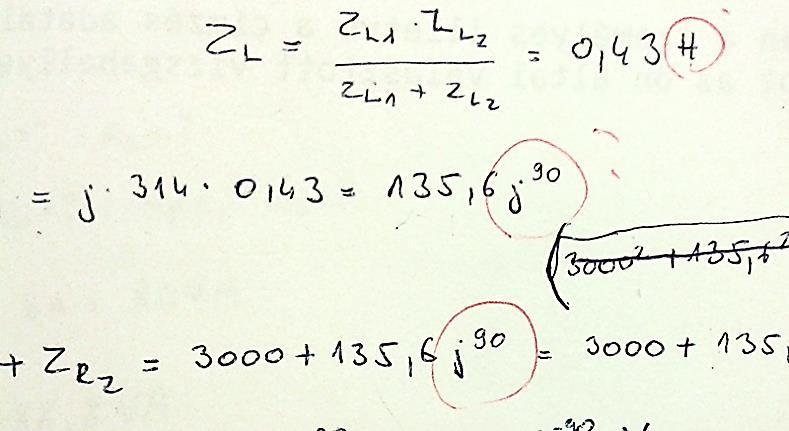 Z_L = Z_L1 · Z_L2 / Z_L1 + Z_L2 = 0,43 H
= j · 314 · 0,43 = 135,6 j^90
3000² + 135,6²
+ Z_R2 = 3000 + 135,6 j^90 = 3000 + 135,